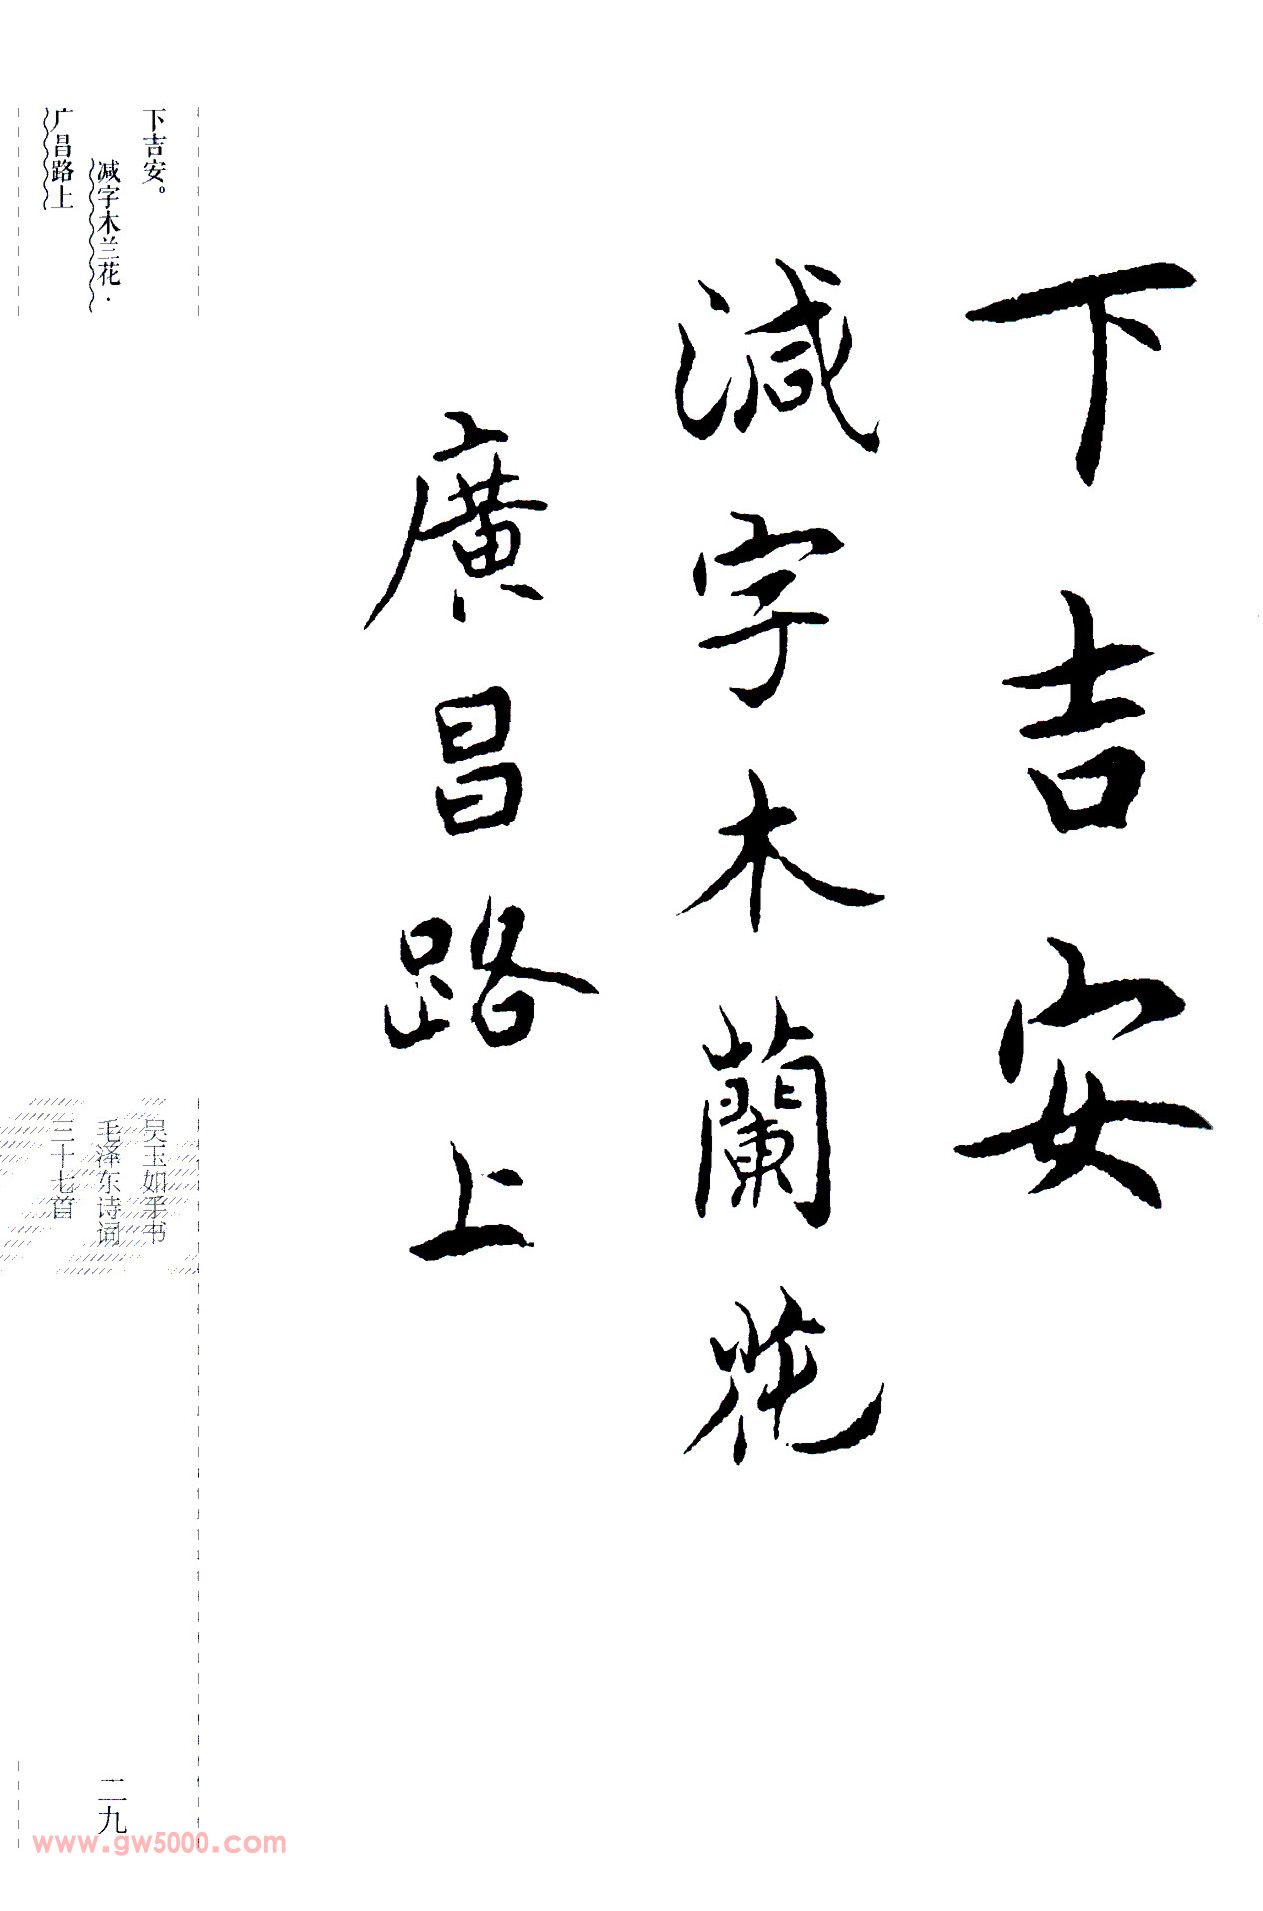 下吉安
減字木蘭花
廣昌路上
下吉安。
减字木兰花·
广昌路上
吴玉如手书
毛泽东诗词
三十七首
二九
www.gw5000.com